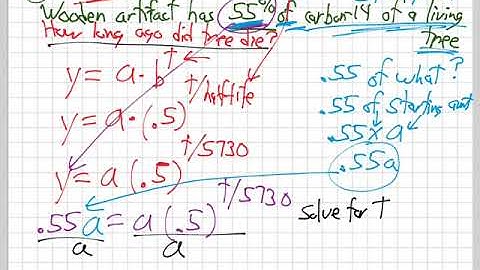 Wooden artifact has 55% of carbon-14 of a living tree
How long ago did tree die?
y = a · b^t
.55 of what?
y = a · (.5)^t/halflife
.55 of starting amt
.55 x a
y = a (.5)^t/5730
.55a
.55a = a (.5)^t/5730
a a
Solve for t